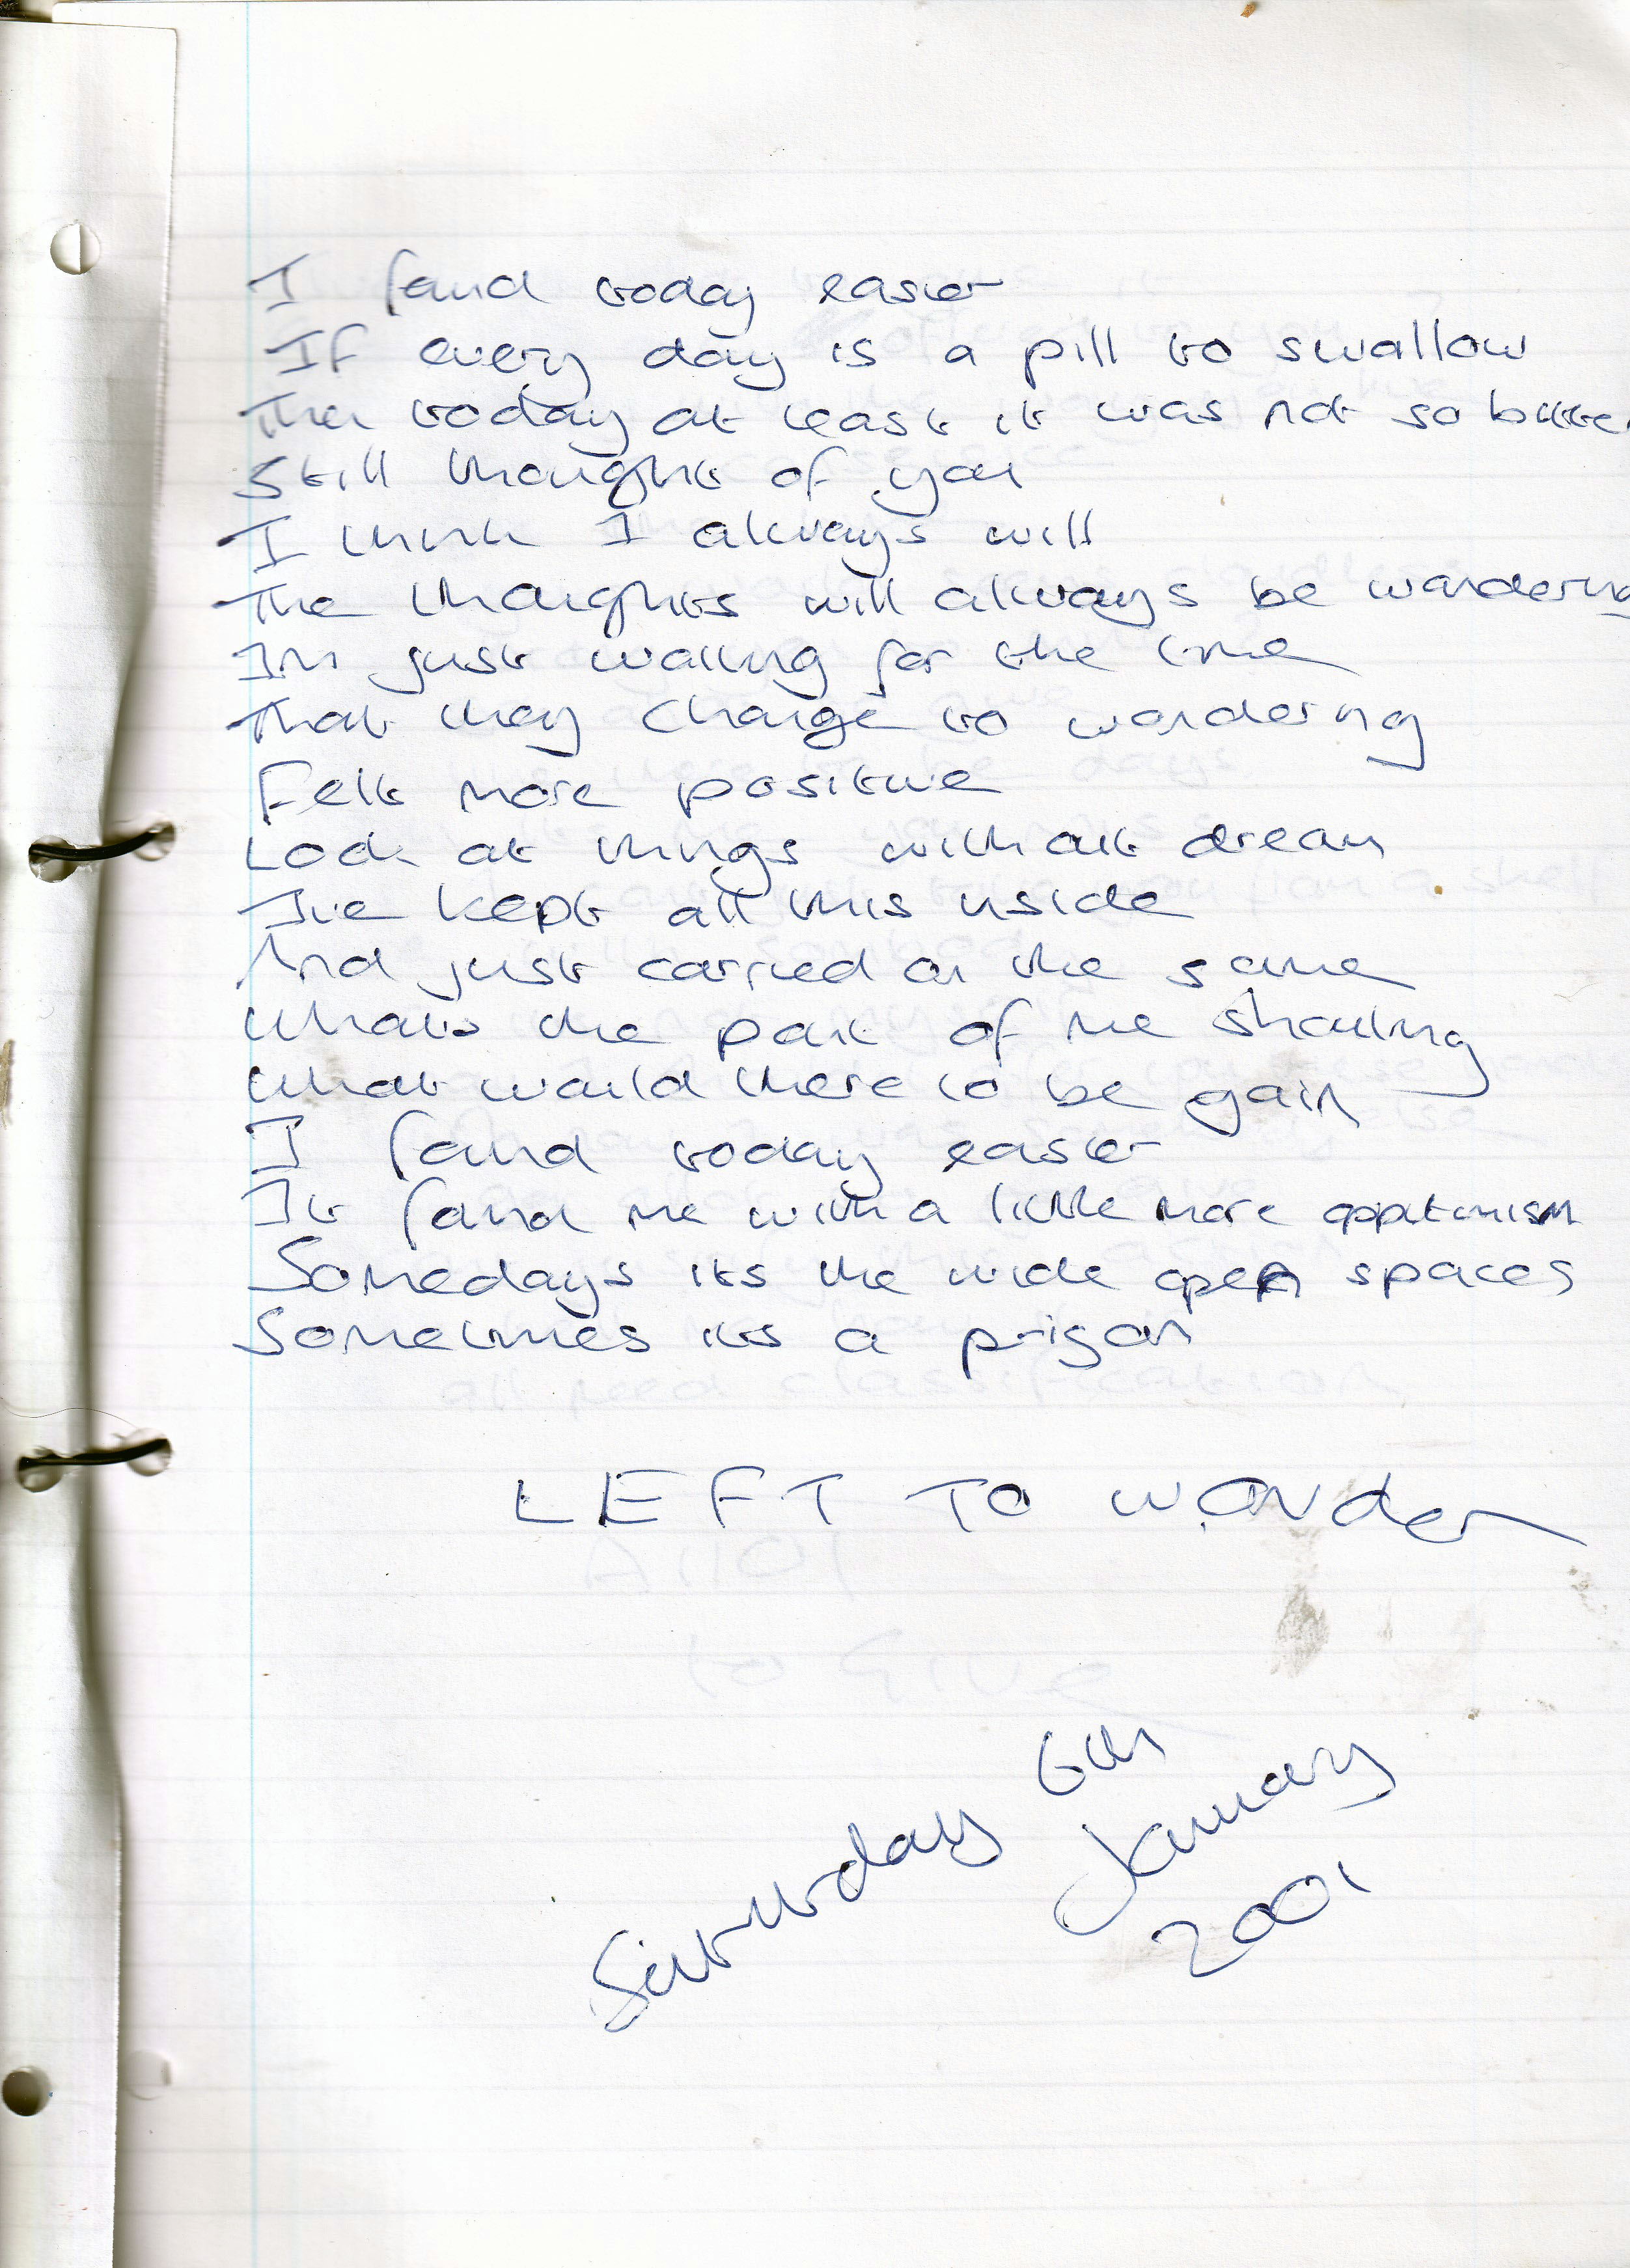 I found today easier
If every day is a pill to swallow
Then today at least it was not so bitter
Still thoughts of you
I think I always will
The thoughts will always be wandering
Im just waiting for the time
That they change to wondering
Felt more positive
Look at things without dream
I've kept all this inside
And just carried on the same
Whats the point of me shouting
What would there to be gain
I found today easier
It found me with a little more opptimism
Somedays its the wide open spaces
Sometimes its a prison
LEFT TO WONder
Saturday 6th
January
2001